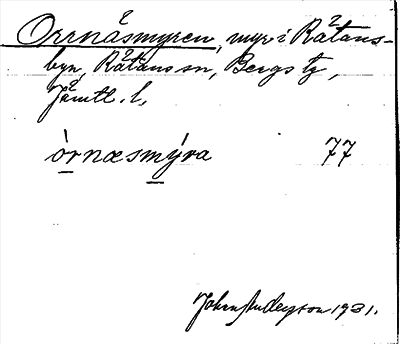 Orrnåsmyren, myr i Rätans-
byn, Rätans sn, Bergs tg,
Jämtl. l.
òrnæsmýra 77
Johan Anderson 1931.